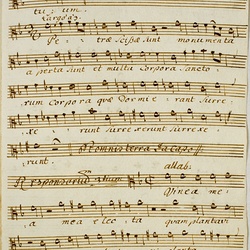 tu: um.
Largo
Pe: træ scissæ sunt monumenta
aperta sunt et multa corpora sancto
rum corpora quæ Dormie: rant surre:
xe: runt surrexerunt surrexe
Et omnis terra
runt. allab:
Responsorium
Vinea me:
a mea elec: ta quam plantavi